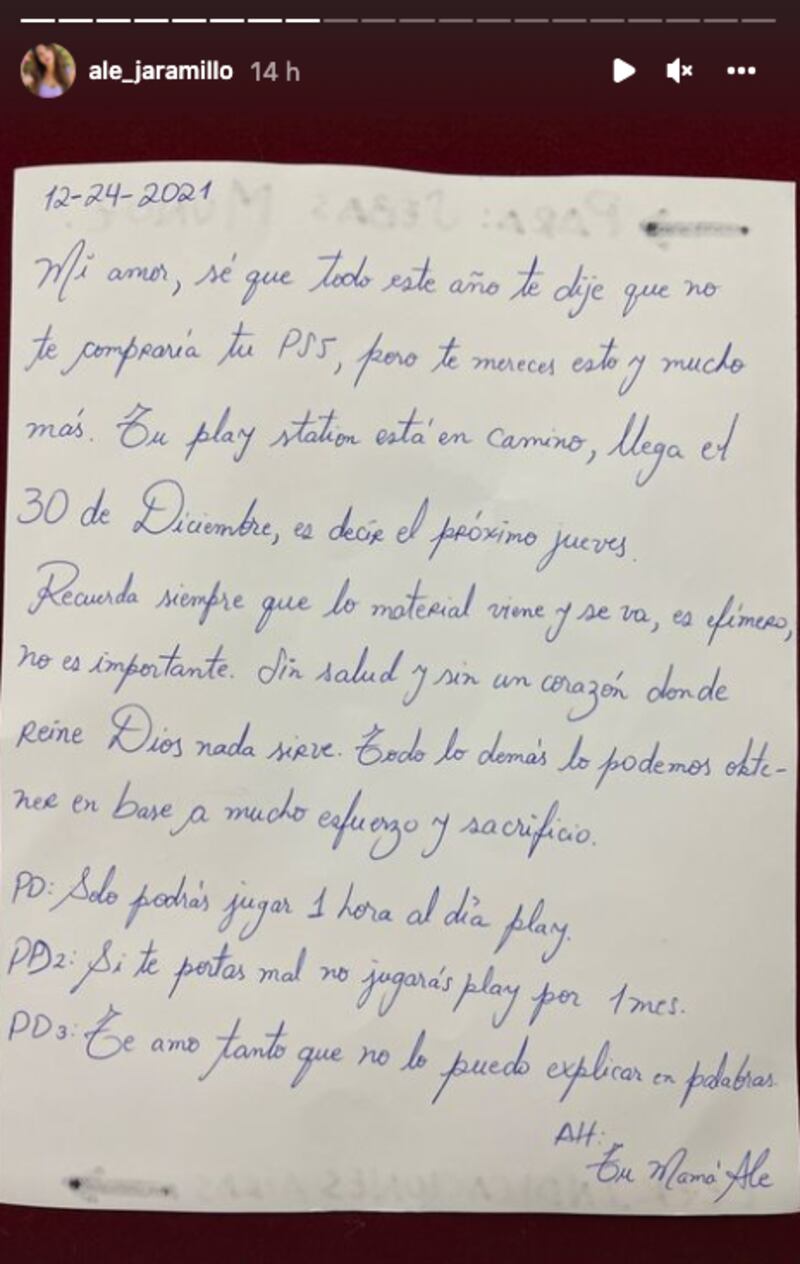 ale_jaramillo 14 h
12-24-2021
Mi amor, sé que todo este año te dije que no
te compraría tu PS5, pero te mereces esto y mucho
más. Tu play station está en camino, llega el
30 de Diciembre, es decir el próximo jueves.
Recuerda siempre que lo material viene y se va, es efímero,
no es importante. Sin salud y sin un corazón donde
reine Dios nada sirve. Todo lo demás lo podemos obte-
ner en base a mucho esfuerzo y sacrificio.
PD: Solo podrás jugar 1 hora al día play.
PD2: Si te portas mal no jugarás play por 1 mes.
PD3: Te amo tanto que no lo puedo explicar en palabras
Att:
Tu Mamá Ale